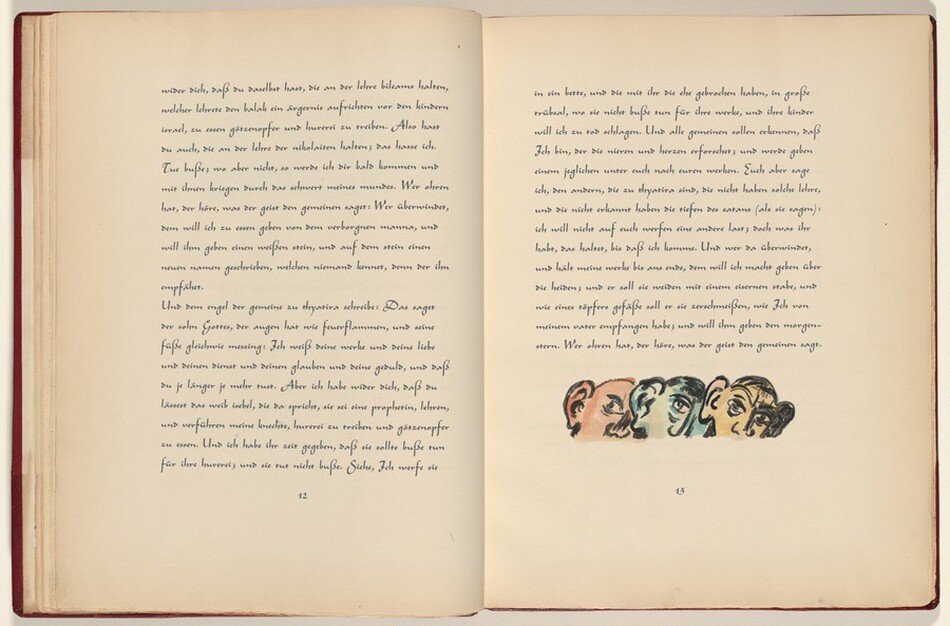 wider dich, daß du daselbst hast, die an der lehre bileams halten,
welcher lehrete den balak ein ärgernis aufrichten vor den kindern
israel, zu essen götzenopfer und hurerei zu treiben. Also hast
du auch, die an der lehre der nikolaiten halten; das hasse ich.
Tue buße; wo aber nicht, so werde ich dir bald kommen und
mit ihnen kriegen durch das schwert meines mundes. Wer ohren
hat, der höre, was der geist den gemeinen saget: Wer überwindet,
dem will ich zu essen geben von dem verborgnen manna, und
will ihm geben einen weißen stein, und auf dem stein einen
neuen namen geschrieben, welchen niemand kennet, denn der ihn
empfähet.
Und dem engel der gemeine zu thyatira schreibe: Das saget
der sohn Gottes, der augen hat wie feuerflammen, und seine
füße gleichwie messing: Ich weiß deine werke und deine liebe
und deinen dienst und deinen glauben und deine geduld, und daß
du je länger je mehr tust. Aber ich habe wider dich, daß du
lässest das weib isebel, die da spricht, sie sei eine prophetin, lehren,
und verführen meine knechte, hurerei zu treiben und götzenopfer
zu essen. Und ich habe ihr zeit gegeben, daß sie sollte buße tun
für ihre hurerei; und sie tut nicht buße. Siehe, Ich werfe sie
12
in ein bette, und die mit ihr die ehe gebrochen haben, in große
trübsal, wo sie nicht buße tun für ihre werke, und ihre kinder
will ich zu tod schlagen. Und alle gemeinen sollen erkennen, daß
Ich bin, der die nieren und herzen erforschet; und werde geben
einem jeglichen unter euch nach euren werken. Euch aber sage
ich, den andern, die zu thyatira sind, die nicht haben solche lehre,
und die nicht erkannt haben die tiefen des satans (als sie sagen):
ich will nicht auf euch werfen eine andere last; doch was ihr
habt, das haltet, bis daß ich komme. Und wer da überwindet,
und hält meine werke bis ans ende, dem will ich macht geben über
die heiden; und er soll sie weiden mit einem eisernen stabe, und
wie eines töpfers gefäße soll er sie zerschmeißen, wie Ich von
meinem vater empfangen habe; und will ihm geben den morgen-
stern. Wer ohren hat, der höre, was der geist den gemeinen sagt.
13